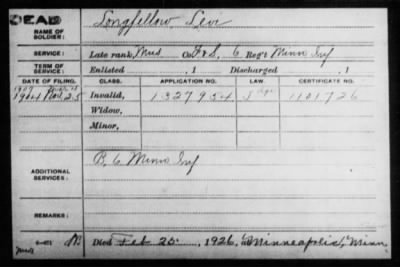 DEAD
NAME OF SOLDIER: Longfellow Levi
SERVICE: Late rank, Mus Co. F & S. 6 Reg't Minn Inf
TERM OF SERVICE: Enlisted , 1 Discharged , 1
DATE OF FILING. CLASS. APPLICATION NO. LAW. CERTIFICATE NO.
1907
1904 Nov. 25 Invalid, 1327954 1101726
Widow,
Minor,
ADDITIONAL SERVICES: B. 6 Minn Inf
REMARKS:
Died Feb 25, 1926, at Minneapolis, Minn.